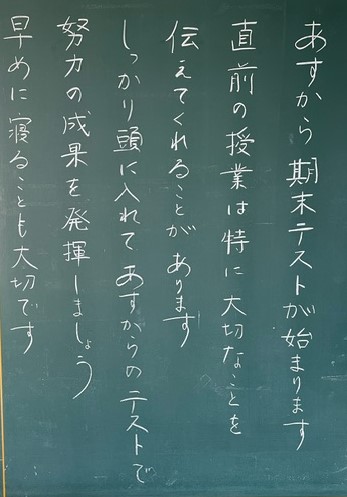 あすから期末テストが始まります
直前の授業は特に大切なことを
伝えてくれることがあります
しっかり頭に入れてあすからのテストで
努力の成果を発揮しましょう
早めに寝ることも大切です